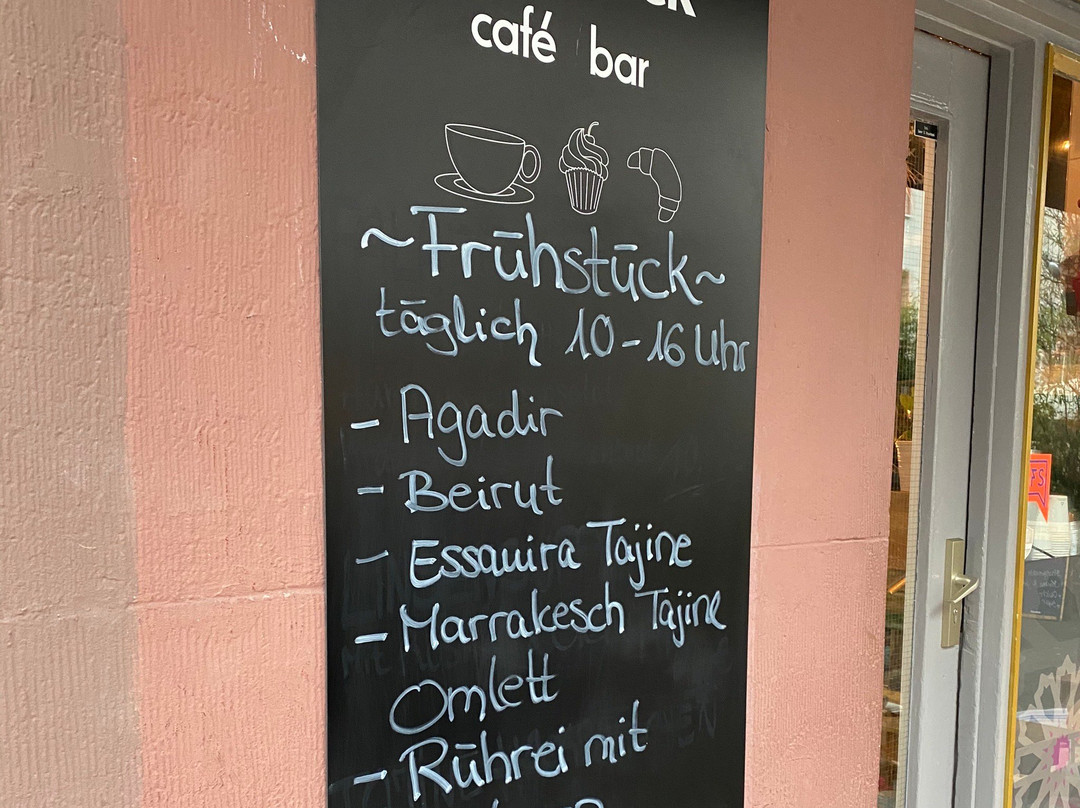 café bar
~Frühstück~
täglich 10-16 Uhr
- Agadir
- Beirut
- Essauira Tajine
- Marrakesch Tajine
Omlett
- Rührei mit